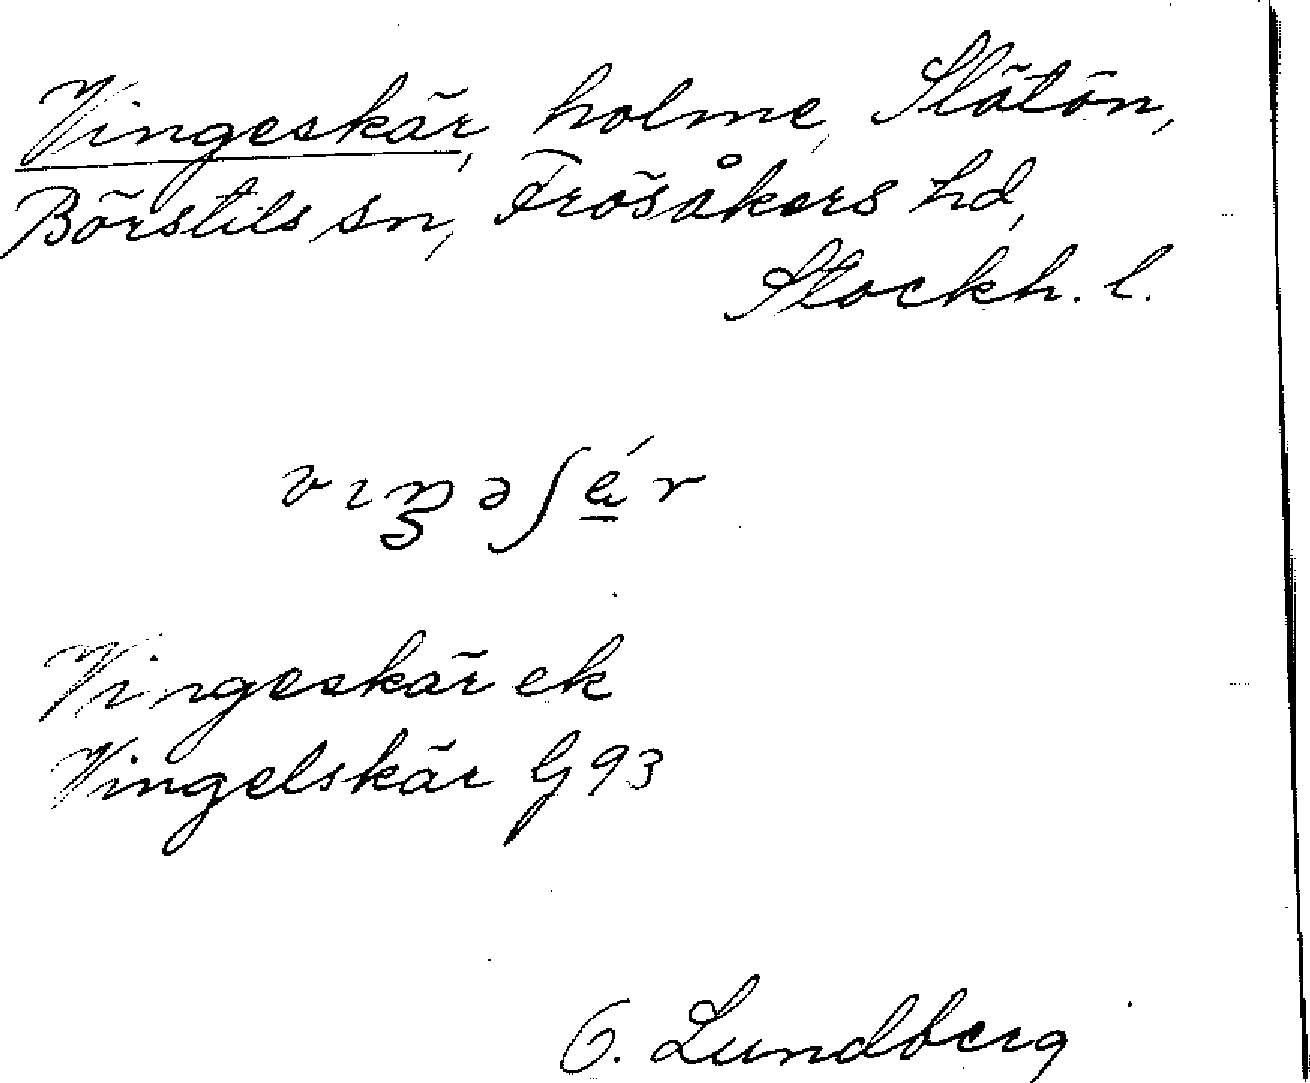 Vingeskär, holme, Slätön,
Börstils sn, Frösåkers hd,
Stockh. l.
Vingeskär ek
Vingelskär G 93
O. Lundberg